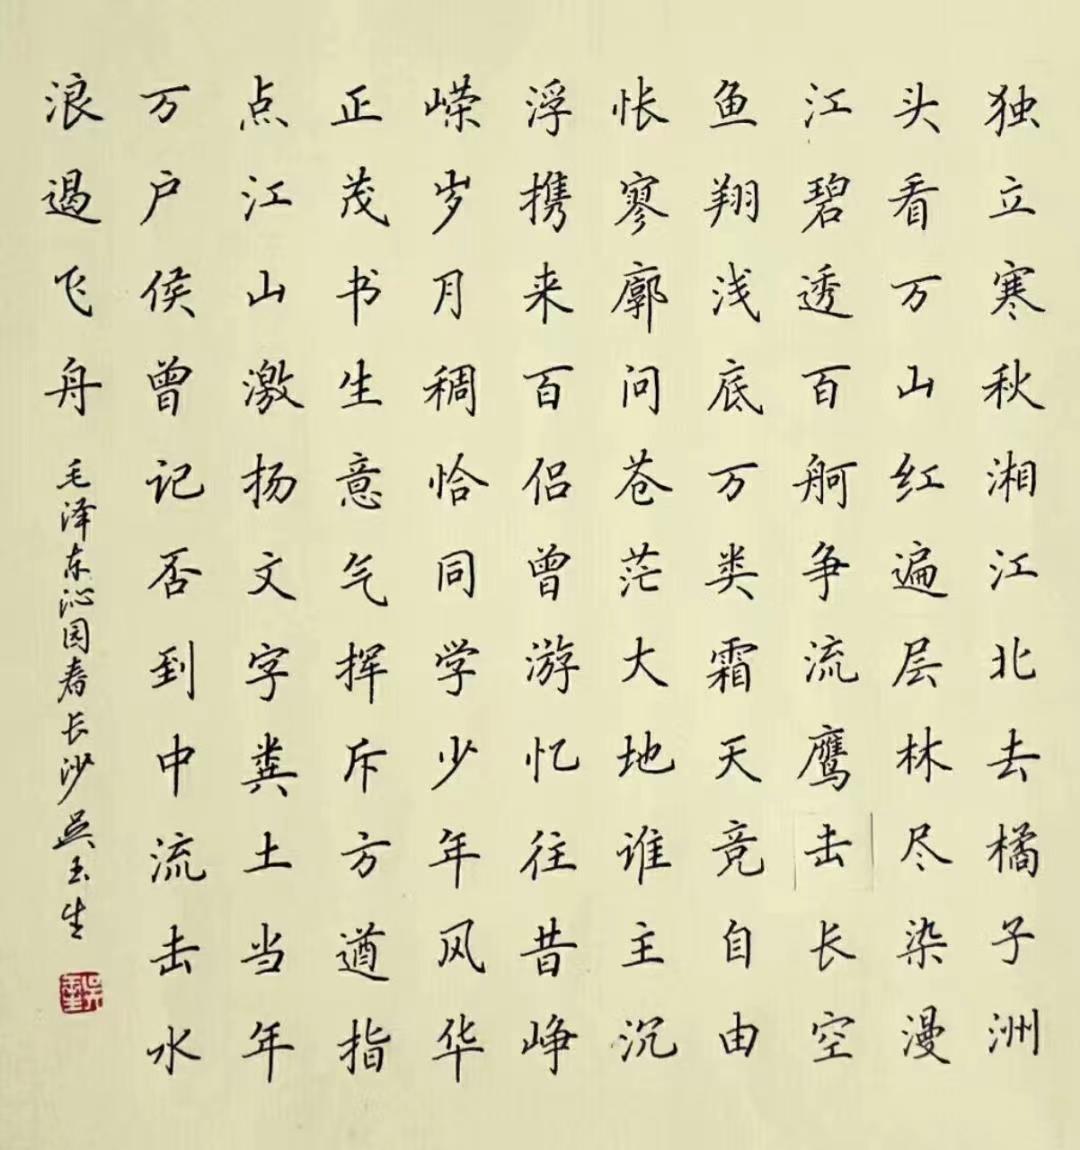 独立寒秋湘江北去橘子洲
头看万山红遍层林尽染漫
江碧透百舸争流鹰击长空
鱼翔浅底万类霜天竞自由
怅寥廓问苍茫大地谁主沉
浮携来百侣曾游忆往昔峥
嵘岁月稠恰同学少年风华
正茂书生意气挥斥方遒指
点江山激扬文字粪土当年
万户侯曾记否到中流击水
浪遏飞舟
毛泽东沁园春长沙吴玉生